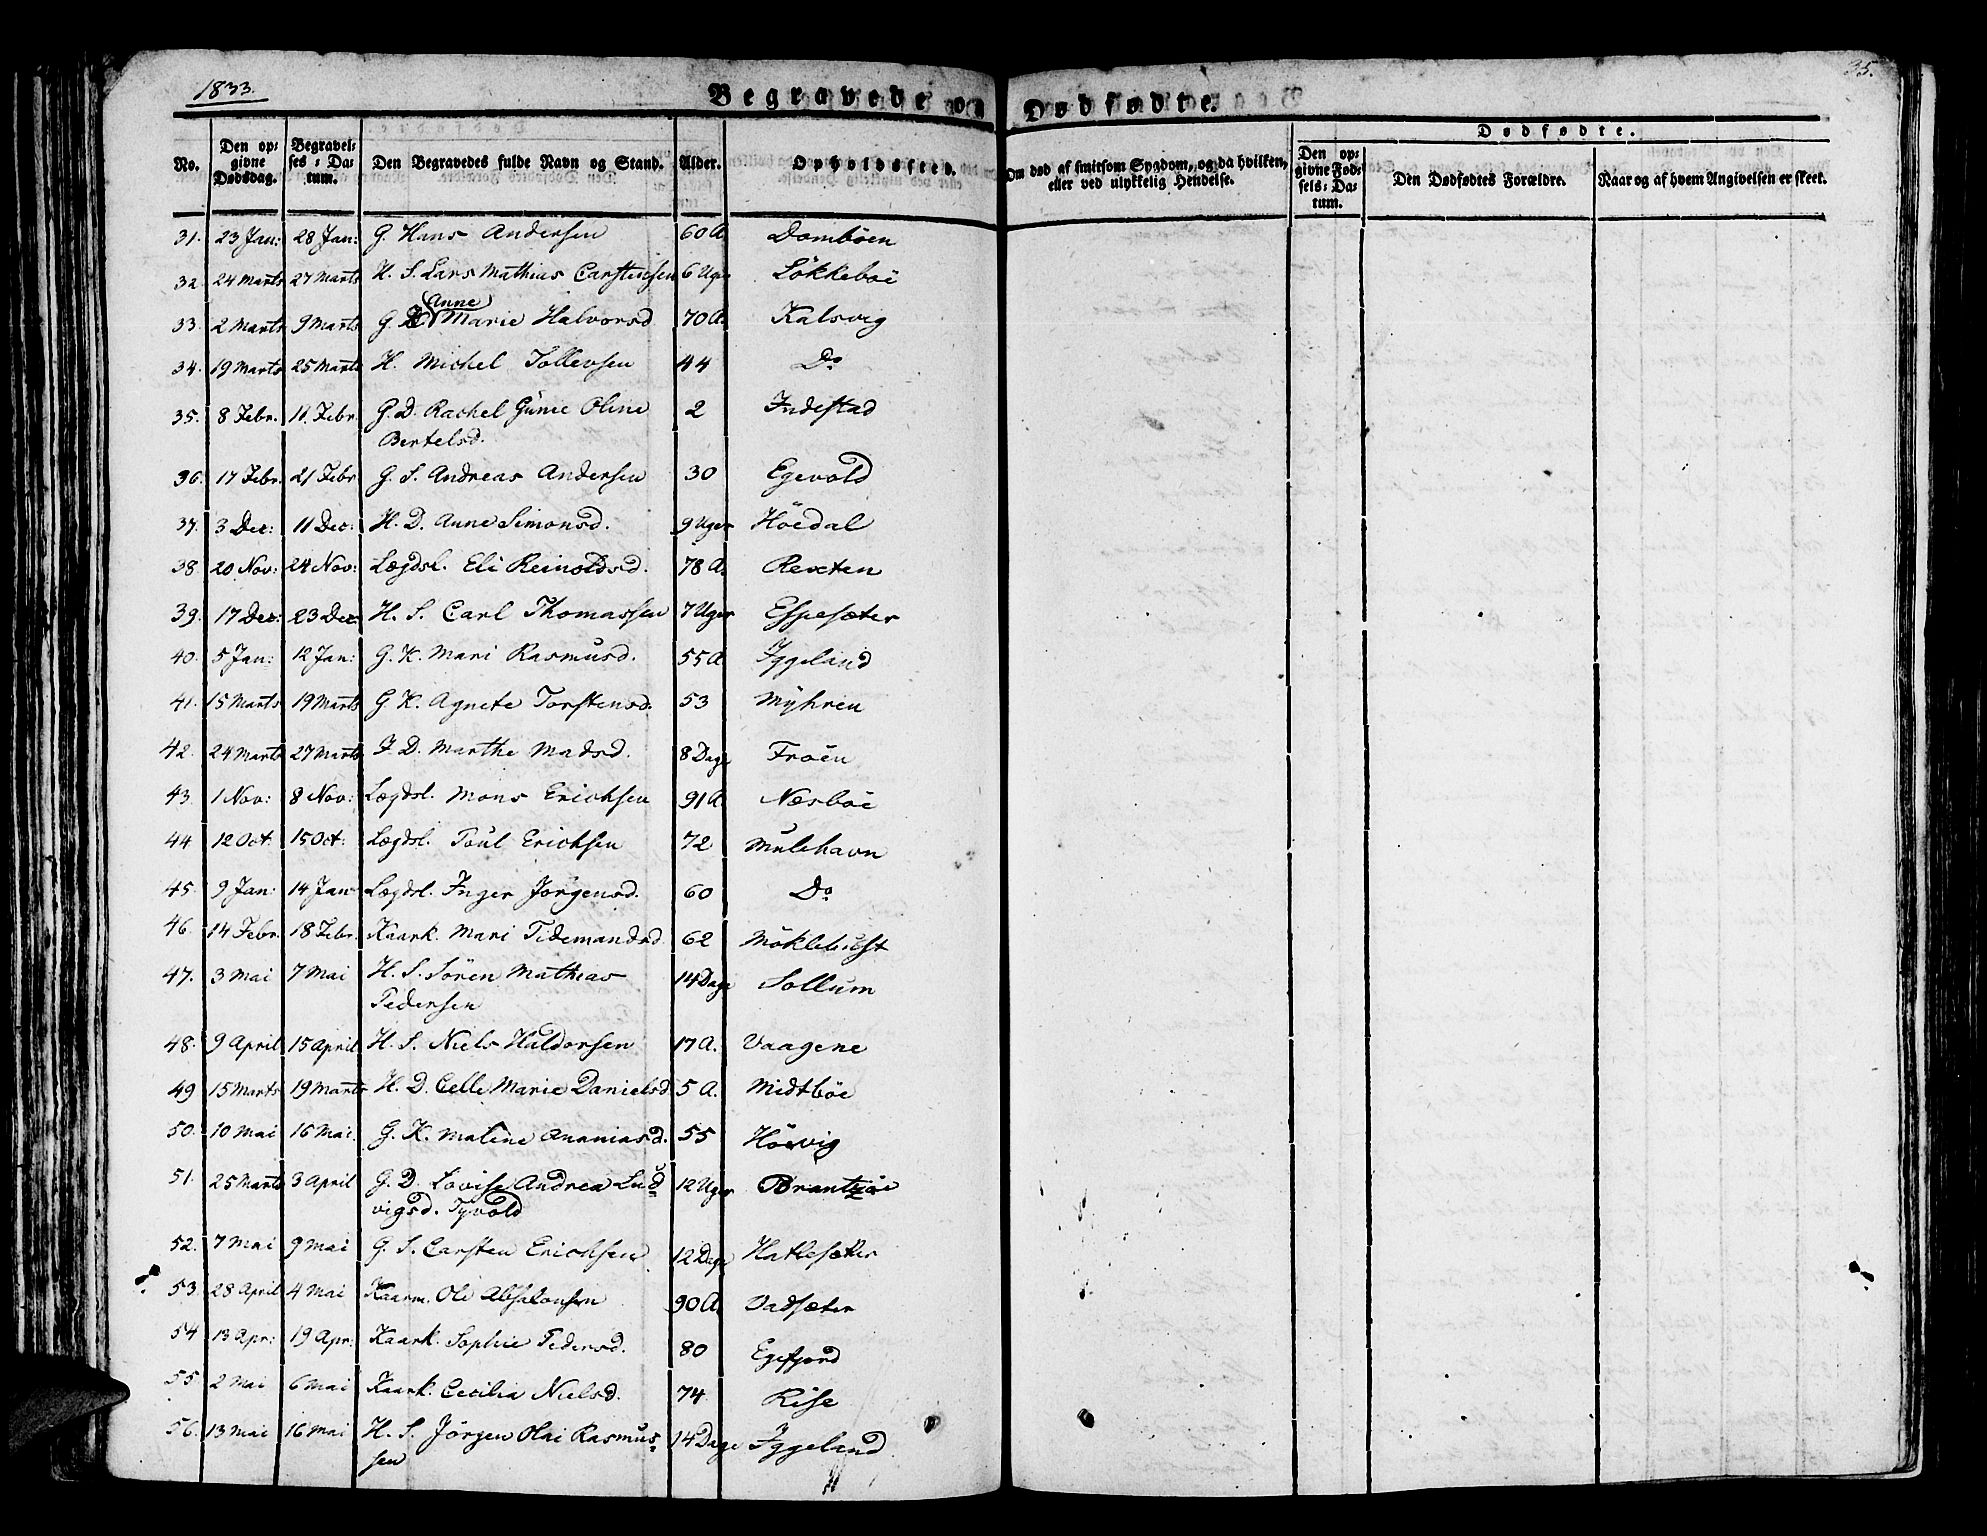 1833.
35.
Begravede og Dødfødte.
No.
Den opgivne Dødsdag.
Begravelses-Datum.
Den Begravedes fulde Navn og Stand.
Alder.
Opholdssted.
Om død af smitsom Sygdom, og da hvilken, eller ved ulykkelig Hendelse.
Dødfødte.
Den opgivne Fødsels-Datum.
Den Dødfødtes Forældre.
Naar og af hvem Angivelsen er skeet.
31. 23 Jan: 28 Jan: G. Hans Andersen 60 A. Domböen
32. 24 Marts 27 Marts H. S. Lars Mathias Carstensen 6 Uger Lökkeböe
33. 2 Marts 9 Marts G. K. Anne Marie Halvorsd 70 A. Kalsvig
34. 19 Marts 25 Marts H. Michel Tollevsen 44 Do
35. 8 Febr. 11. Febr. G. D. Rachel Gunie Oline 2 Indestad
Bertelsd.
36. 17 Febr. 21 Febr G. S. Andreas Andersen 30 Egevold
37. 3 Dec: 11 Dec: H. D. Anne Simonsd. 9 Uger Höedal
38. 20 Nov: 24 Nov: Lægdsl. Eli Reinoldsd. 78 A. Rexten
39. 17 Dec: 23 Dec: H. S. Carl Thomassen 7 Uger Espesæter
40. 5 Jan: 12 Jan: G. K. Mari Rasmusd. 55 A. Iggeland
41. 15 Marts 19 Marts G K. Agnete Torstensd. 53 Myhren
42. 24 Marts 27 Marts I D. Marthe Madsd. 8 Dage Fröen
43. 1 Nov: 8 Nov: Lægdsl. Mons Erichsen 91 A. Næsböe
44 12 Oct: 15 Oct: Lægdsl. Poul Erichsen 72 Mulehavn
45. 9 Jan: 14 Jan Lægdsl. Inger Jörgensd. 60 Do
46. 14 Febr. 18 Febr. Kaark. Mari Tidemandsd 62 Möklebust
47. 3 Mai 7 Mai H. S. Sören Mathias 14 Dage Sollum
Pedersen
48. 9 April 15 April H. S. Niels Haldorsen 17 A. Vaagene
49 15 Marts 19 Marts H. D. Celle Marie Danielsd 5 A. Midtböe
50. 10 Mai 16 Mai. G. K. Maline Ananiasd. 55 Höevig
51. 25 Marts 3 April G. D. Lovise Andrea Lud 12 Uger
vigsd. Tyvold
52. 7 Mai 9 Mai G. S. Carsten Erichsen 12 Dage Hatlesæter
53. 28 April 4 Mai Kaarm. Ole Absalonsen 90 A. Vadsæter
54 13 Apr: 19 Apr: Kaark. Sophie Pedersd. 80 Egefjord
55 2 Mai 6 Mai Kaark. Cecilia Nielsd. 74. Rise
56. 13 Mai 16 Mai H. S. Jörgen Olai Rasmus- 14 Dage Iggeland
sen